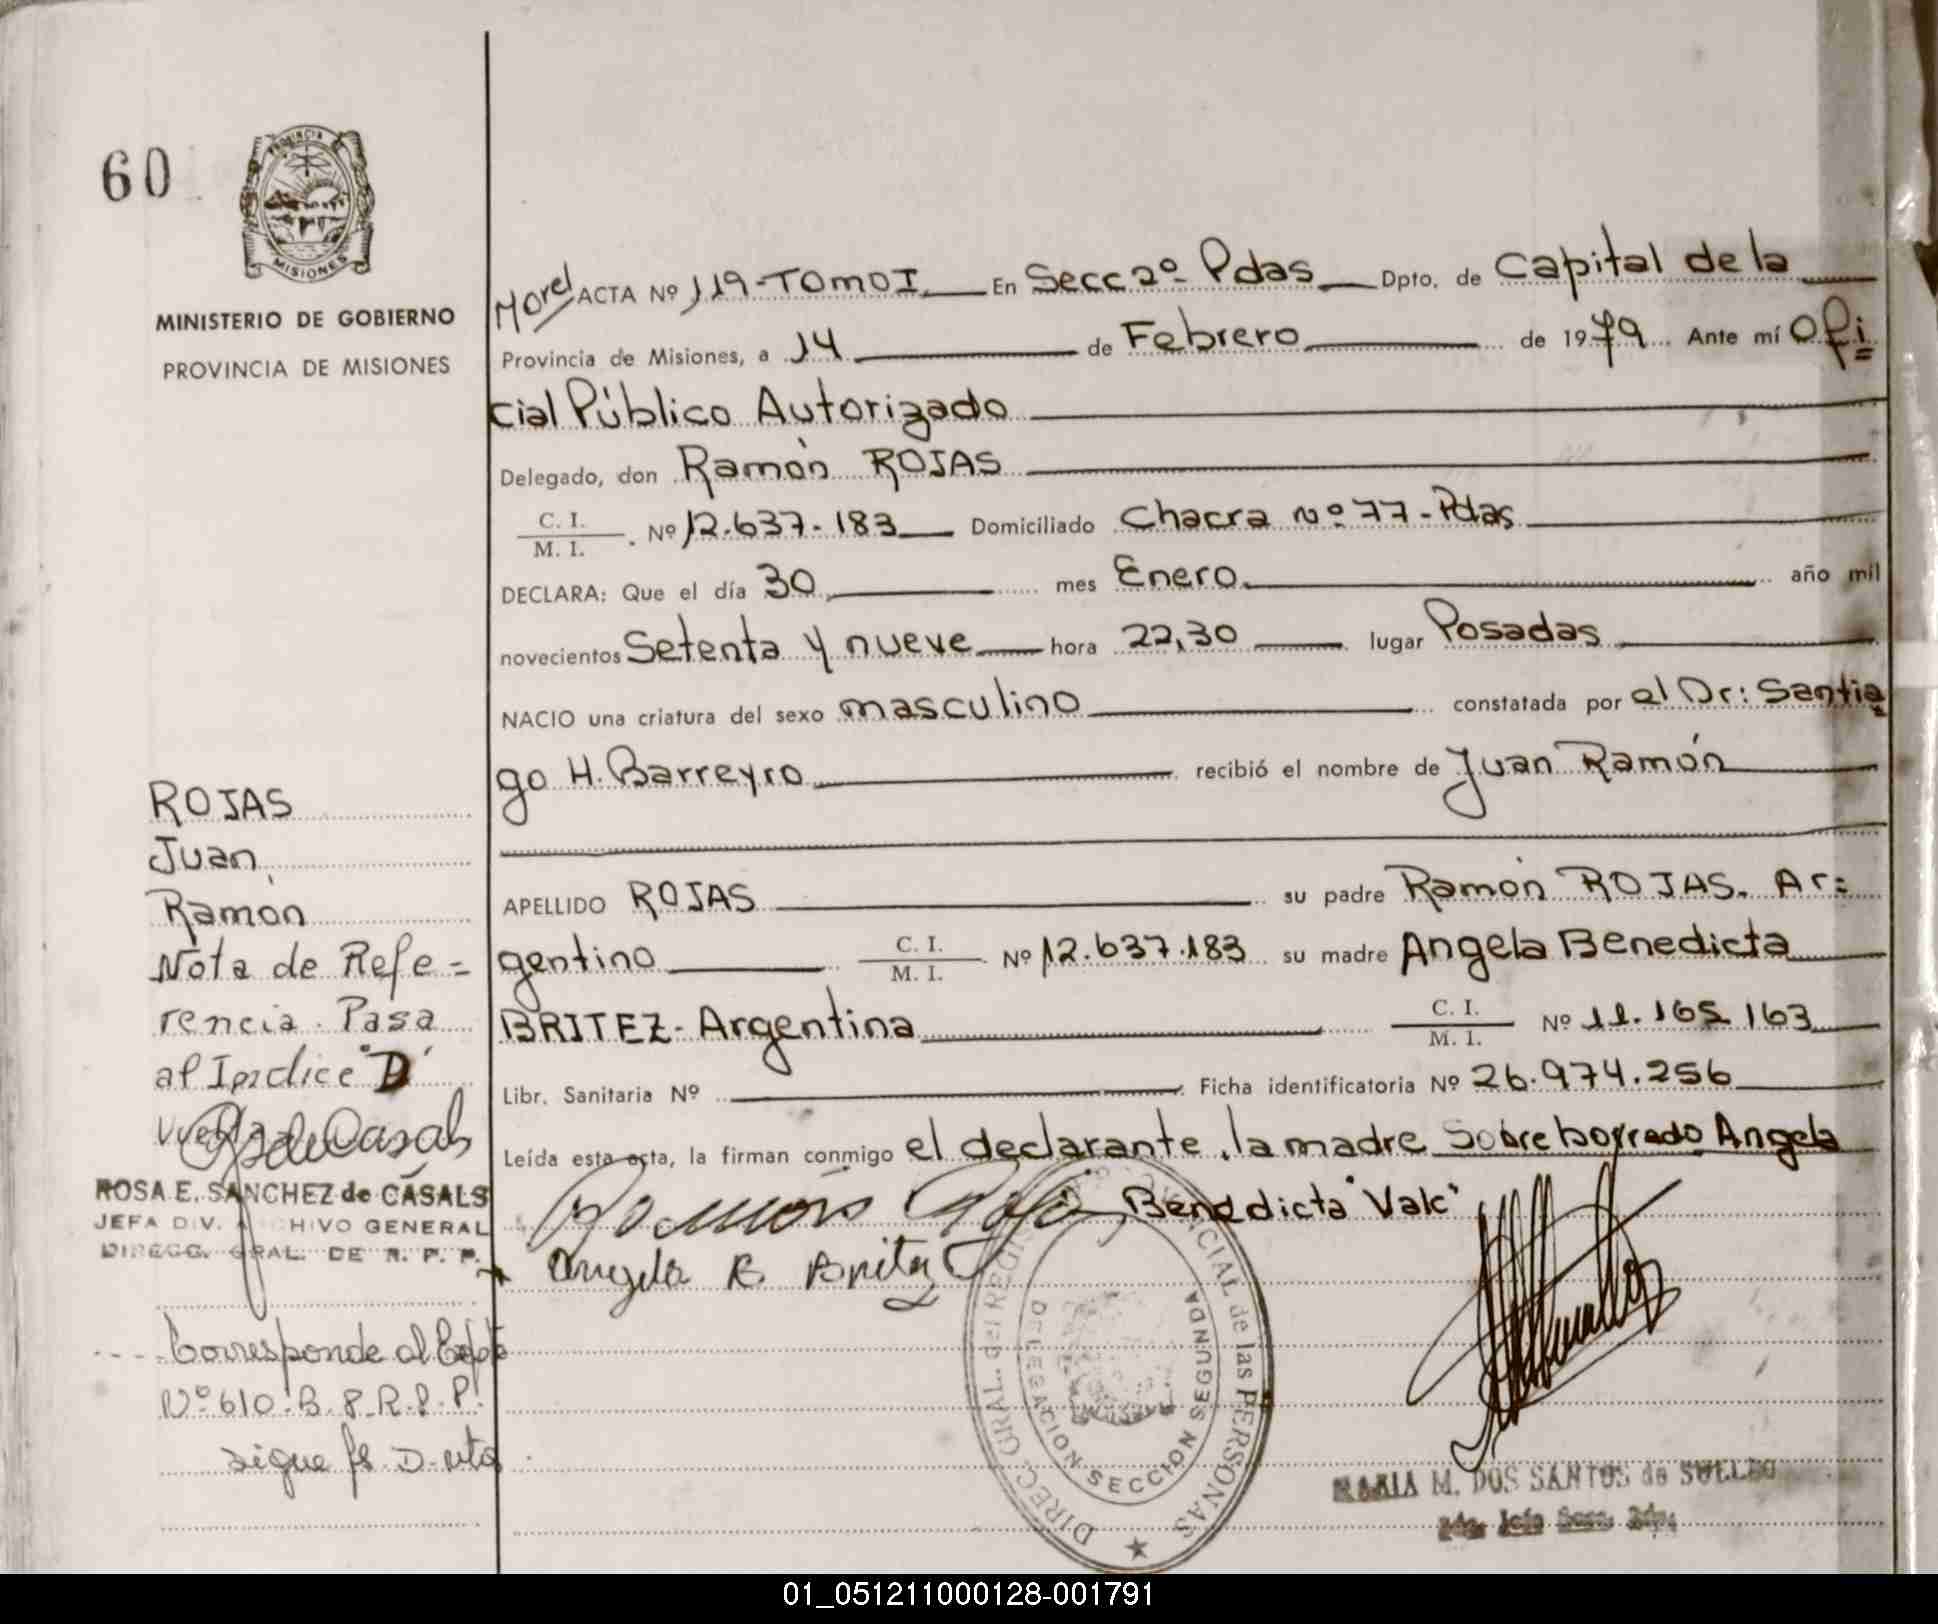 60
PROVINCIA
MISIONES
MINISTERIO DE GOBIERNO
PROVINCIA DE MISIONES
Morel ACTA Nº 119-TOMO I En Secc 2º Pdas Dpto. de Capital de la
Provincia de Misiones, a 14 de Febrero de 1979 Ante mí Ofi=
cial Público Autorizado
Delegado, don Ramón ROJAS
C. I.
M. I. Nº 12.637.183 Domiciliado Chacra Nº 77-Pdas
DECLARA: Que el día 30 mes Enero año mil
novecientos Setenta y nueve hora 22,30 lugar Posadas
NACIO una criatura del sexo masculino constatada por el Dr: Santia
go H. Barreyro recibió el nombre de Juan Ramón
APELLIDO ROJAS su padre Ramón ROJAS. Ar=
gentino C. I.
M. I. Nº 12.637.183 su madre Angela Benedicta
BRITEZ- Argentina C. I.
M. I. Nº 11.165 163
Libr. Sanitaria Nº Ficha identificatoria Nº 26.974.256
Leída esta acta, la firman conmigo el declarante, la madre Sobre borrado Angela
Benedicta "Vale"
Ramón Rojas
Angela B. Britez
DIREC. GRAL. del REGIS CIAL de las PERSONAS
DELEGACION SECCION SEGUNDA
MARIA M. DOS SANTOS de
ROJAS
Juan
Ramón
Nota de Refe=
rencia. Pasa
al Indice "D"
ROSA E. SANCHEZ de CASALS
JEFA DIV. HIVO GENERAL
DIRECC. GRAL. DE R. P. P.
Corresponde al Expte
Nº 610.B.P.R.P.P.
sigue fs D. vta
01_051211000128-001791